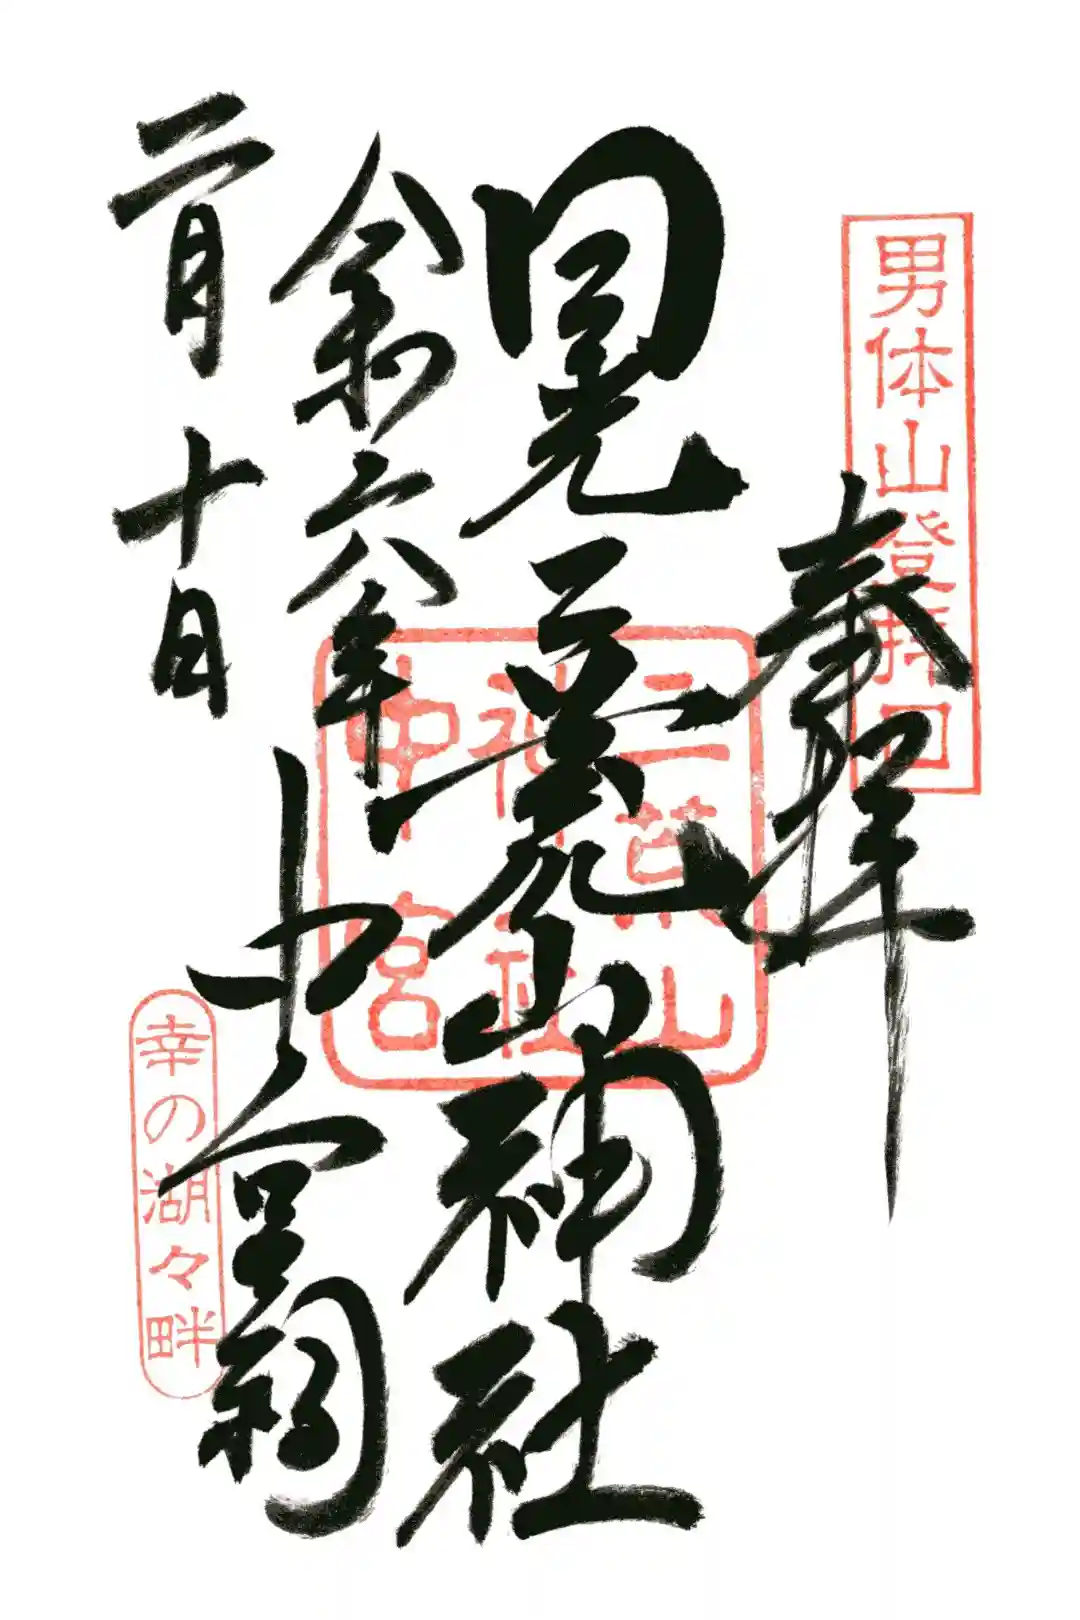 男体山登拝口
奉拝
日光二荒山神社
二荒山
神社
中宮
令和六年
中宮祠
二月十日
幸の湖々畔